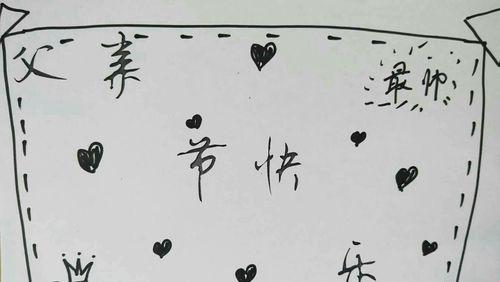 父亲
最帅
节快
乐